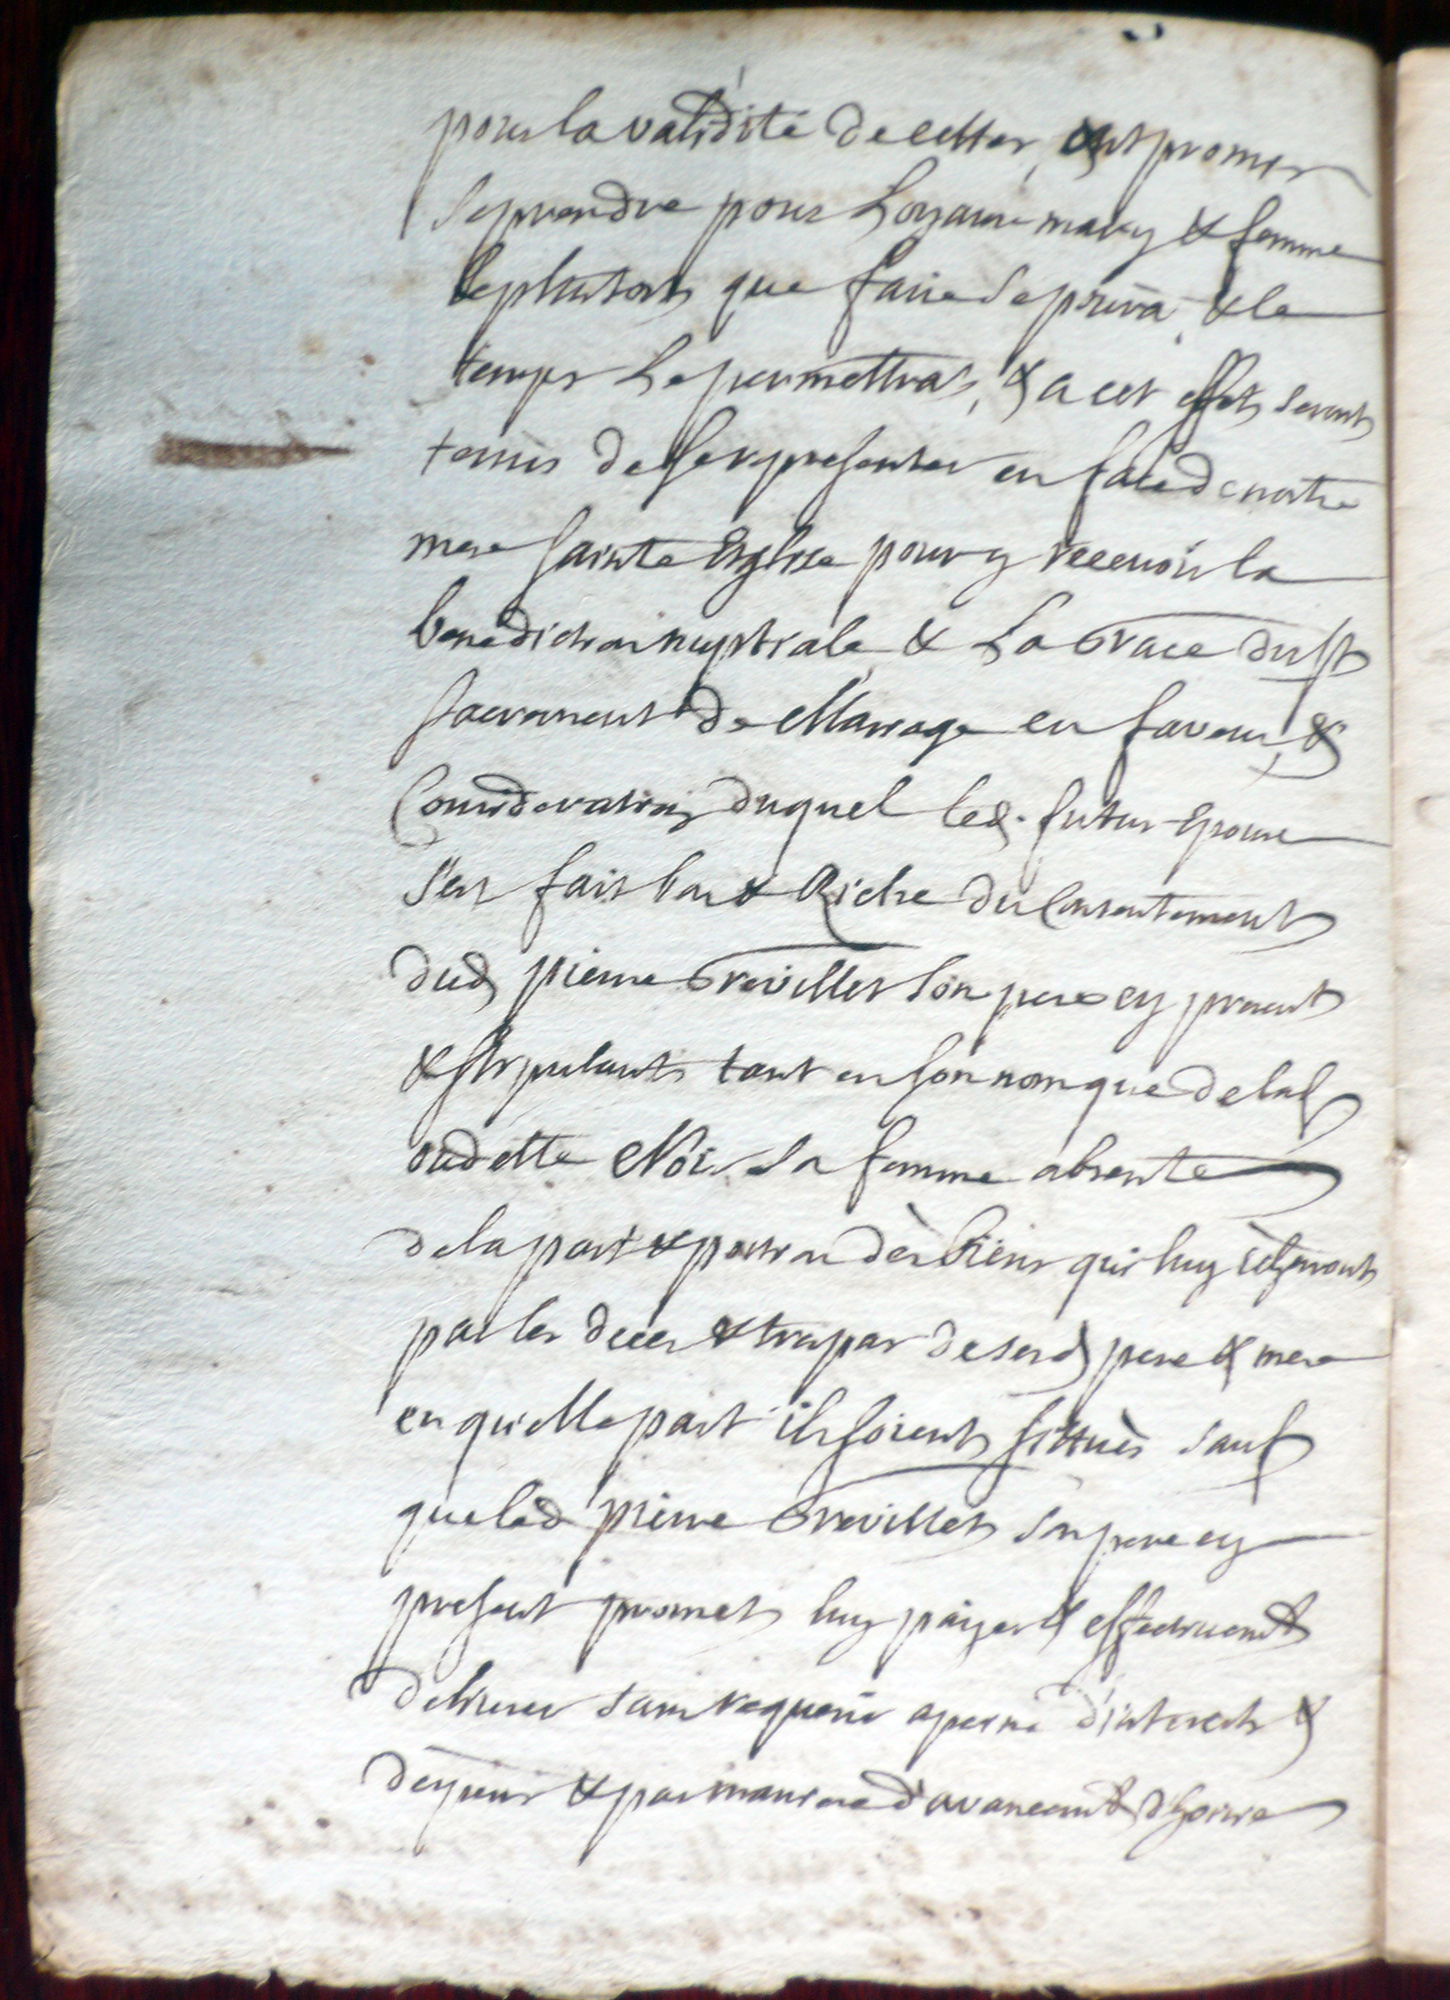 pour la validité de cettes, ont promis
se prendre pour Loyaux mary & femme
le plustost que faire se pourra & le
temps le permettra, & a cet effet seront
tenus de se representer en face de nostre
mere sainte Eglise pour y recevoir la
benediction nuptiale & La Grace du st
sacrement de Mariage en faveur &
Consideration duquel led. futur Epoux
s'est fait bon & Riche du Consentement
dud pierre Grevillet son pere cy present
& stipulant tant en son nom que de lad
oudette Noir sa femme absente
de la part & portion des biens qui luy
par les deces & trepas de sesd pere & mere
en quelle part ils soient sittués sauf
que led pierre Grevillet son pere cy
present promet luy payer & effectivemt
delivrer sans requerir a peine d'interets &
depens & par maniere d'avancemt d'hoirie